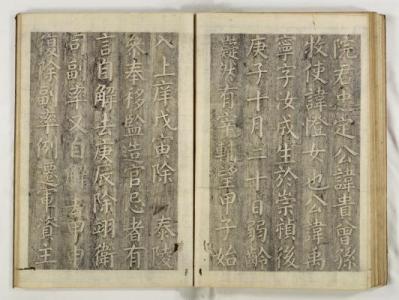 院君忠定公諱貴曾孫
牧使諱憕女也公諱禹
寧字汝成生於崇禎後
庚子十月二十日弱齡
嶷然有宰輔望甲子始
入上庠戊寅除　泰陵
叅奉移監造官忌者有
言自解去庚辰除翊衛
司副率又自解去甲申
復除副率例遷軍資主